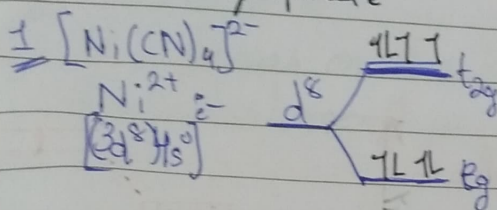 1 [Ni(CN)4]2-
Ni2+ :-
[(3d8)4s0]
d8
1L 1 1 t2g
1L 1L eg